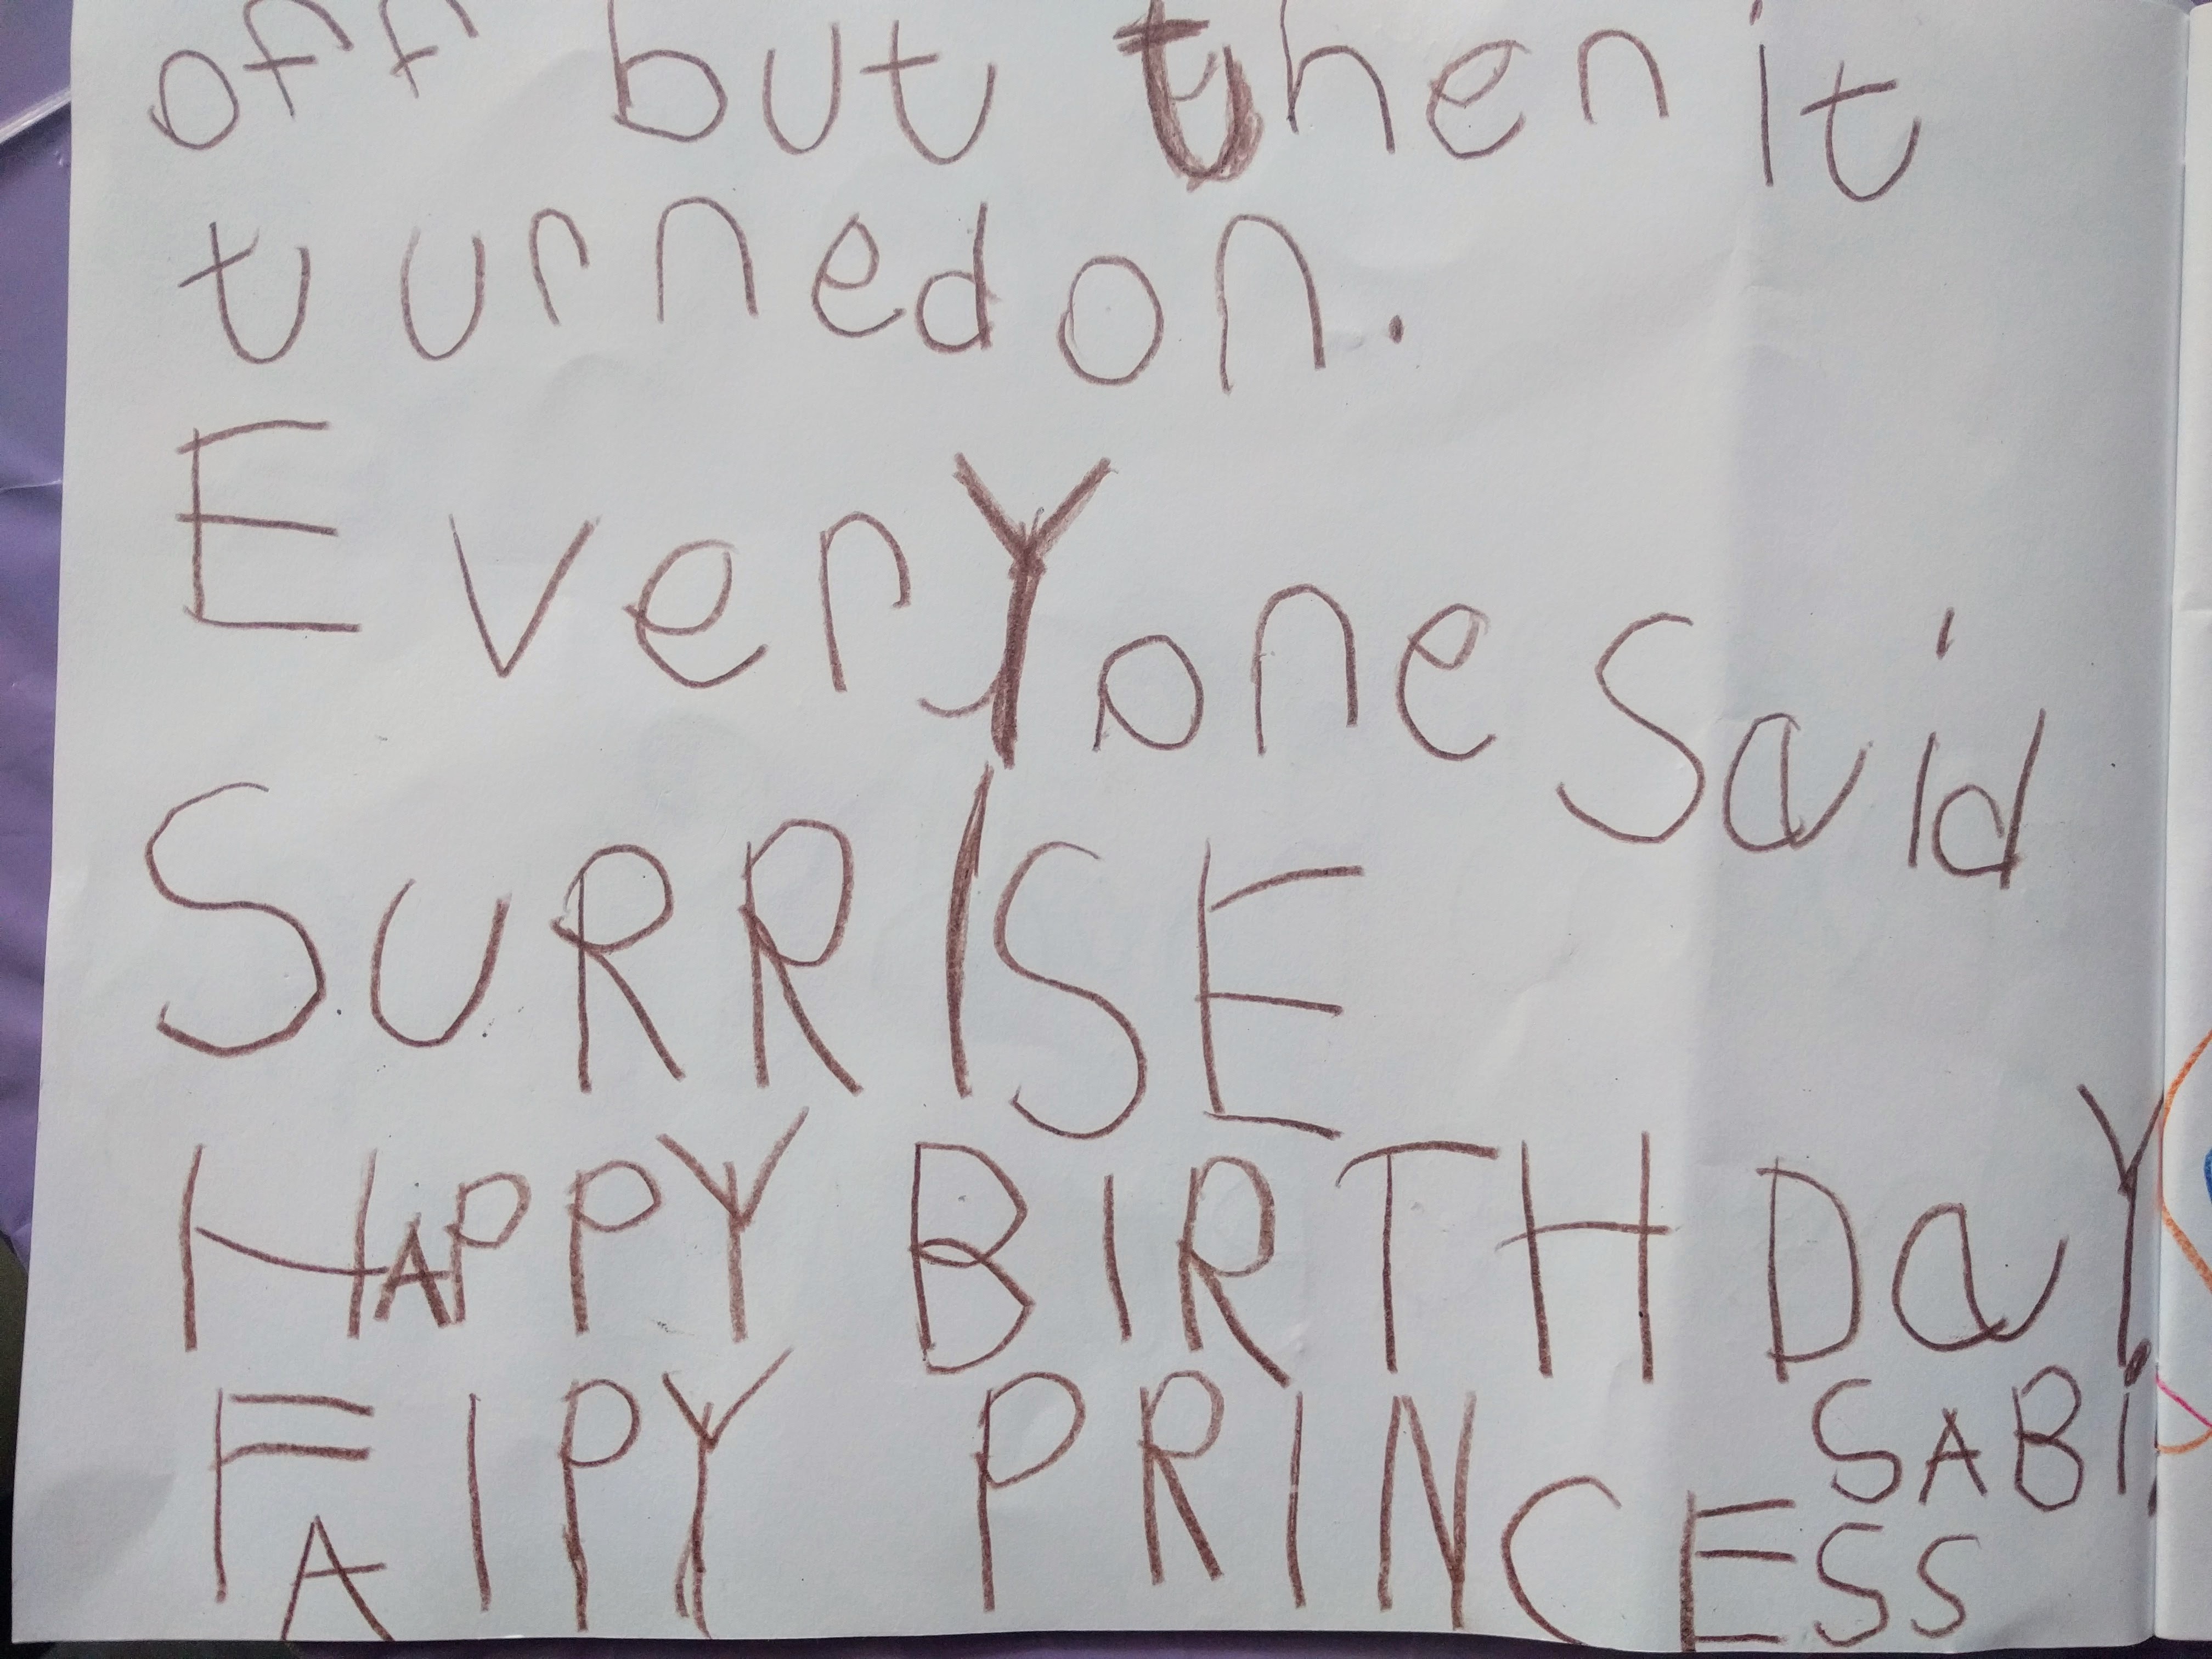 off but then it
turned on.
Everyone said
SURRISE
HAPPY BIRTH DaY
FAIPY PRINCESS SABI